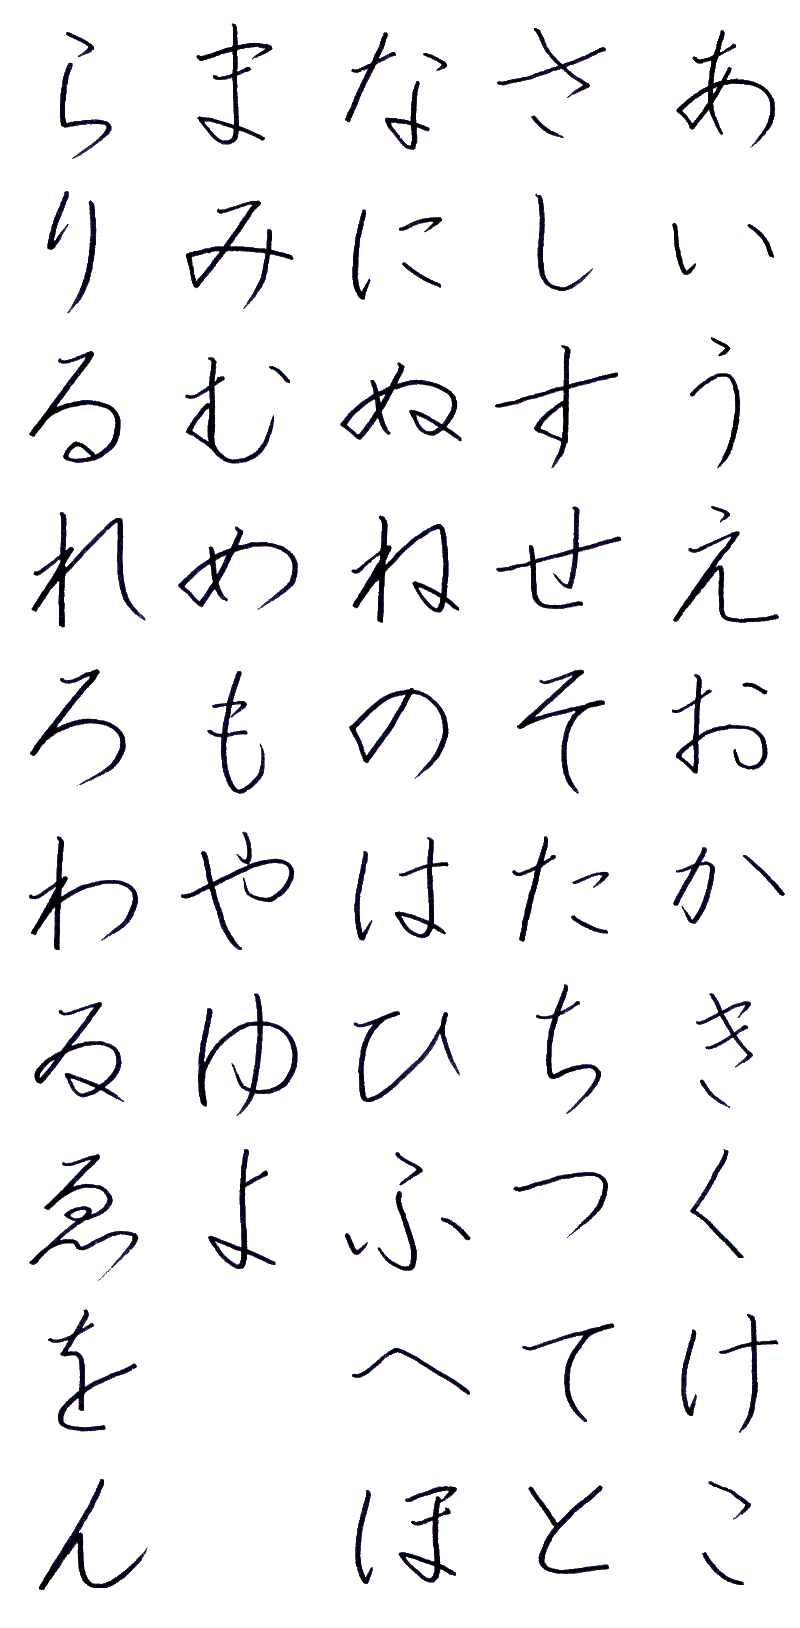 あいうえおかきくけこ
さしすせそたちつてと
なにぬねのはひふへほ
まみむめもやゆよ
らりるれろわゐゑをん